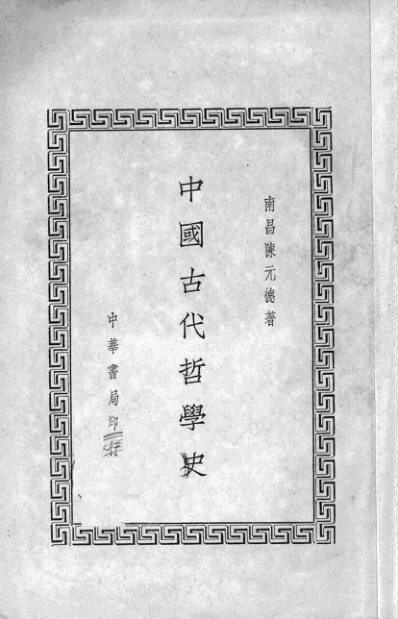 南昌陳元德著
中國古代哲學史
中華書局印行